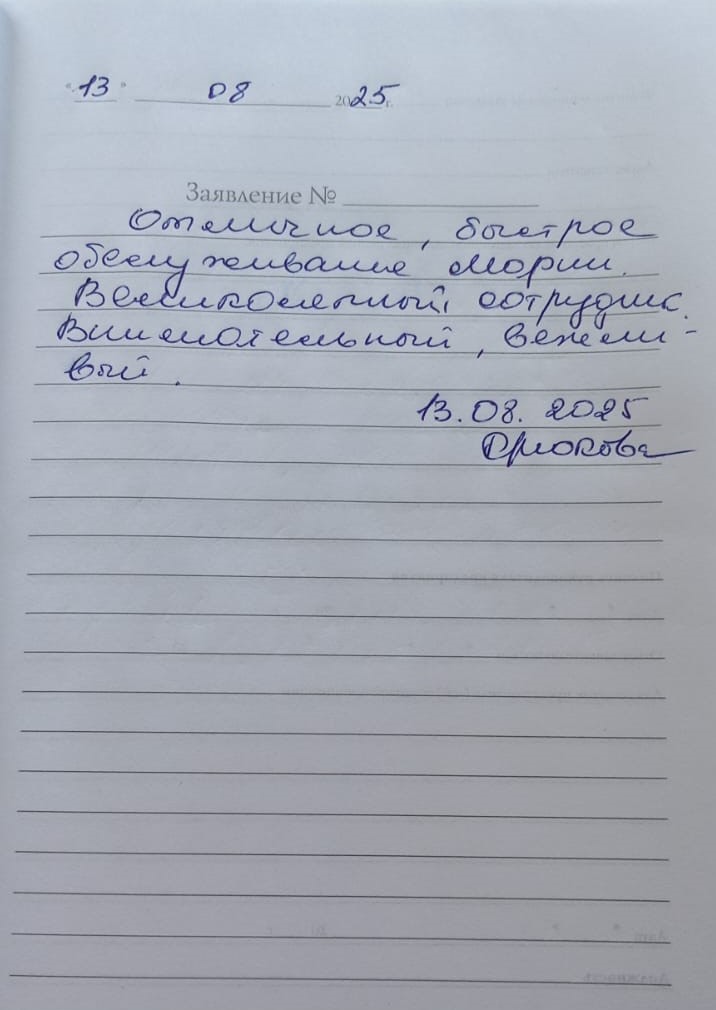 "13" 08 2025 г.
Заявление №
Отличное, быстрое
обслуживание Марии.
Великолепный сотрудник.
Внимательный, вежли-
вый.
13.08.2025